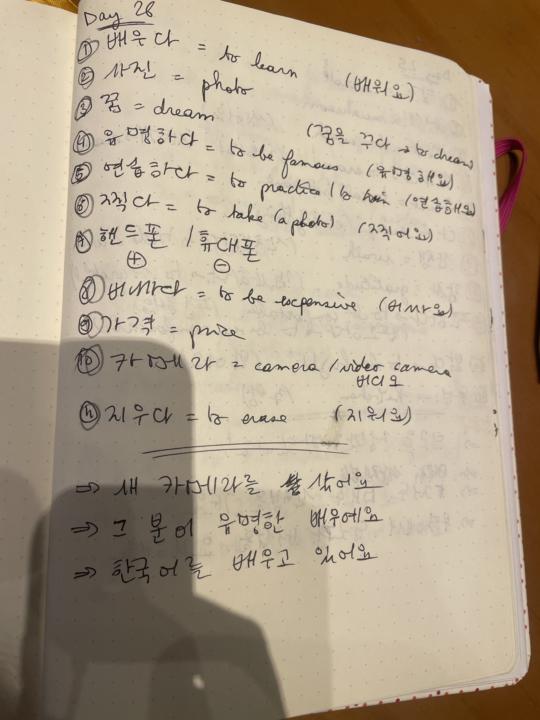 Day 26
① 배우다 = to learn (배워요)
② 사진 = photo
③ 꿈 = dream (꿈을 꾸다 → to dream)
④ 유명하다 = to be famous (유명해요)
⑤ 연습하다 = to practice / to (연습해요)
⑥ 찍다 = to take (a photo) (찍어요)
⑦ 핸드폰 / 휴대폰
⊕ ⊖
⑧ 비싸다 = to be expensive (비싸요)
⑨ 가격 = price
⑩ 카메라 = camera / video camera
비디오
⑪ 지우다 = to erase (지워요)
⇒ 새 카메라를 샀어요
⇒ 그 분이 유명한 배우예요
⇒ 한국어를 배우고 있어요